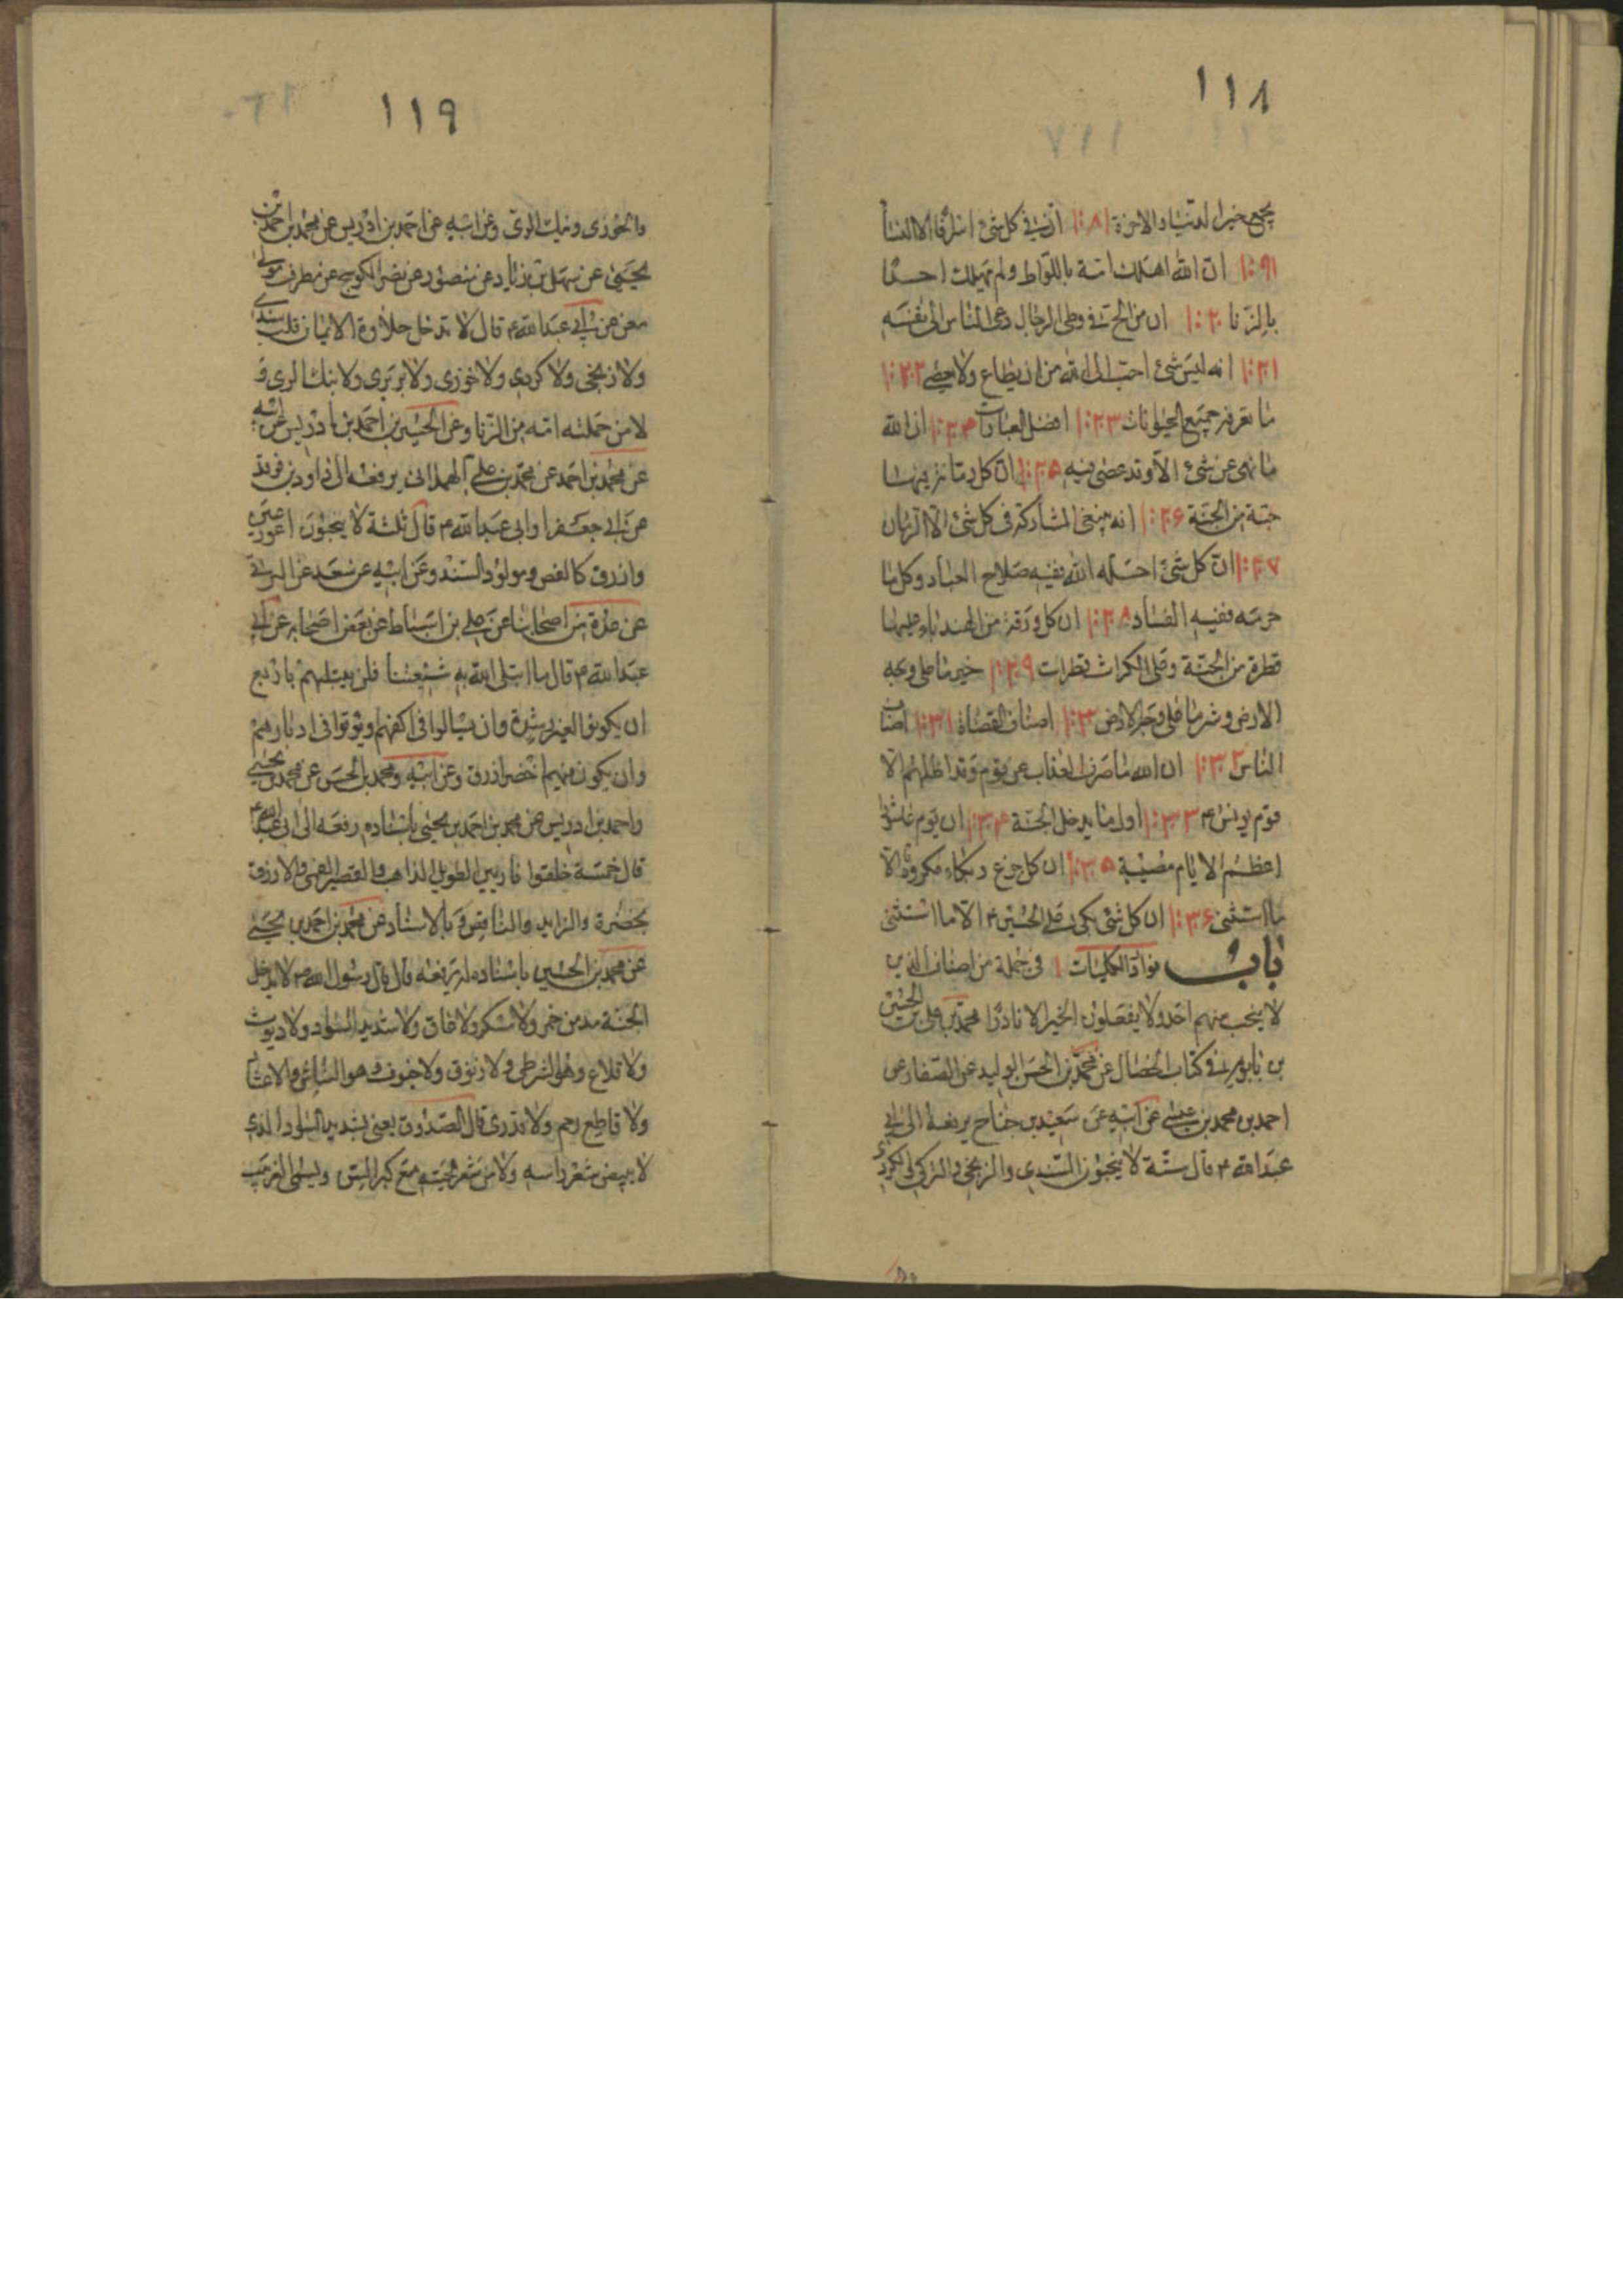 ١١٨
يجمع خير الدنيا والاخرة ١٠١٨ ان في كل شئ اسرافا الا النساء
١٠١٩ ان الله اهلك امة باللواط ولم يهلك احدا
بالزنا ١٠٢٠ ان من الح في وطى الرجال دعى الناس الى نفسه
١٠٢١ انه ليس شئ احب الى الله من ان يطاع ولا يعصى ١٠٢٢
ما تعرفه جميع الحيوانات ١٠٢٣ افضل العبادات ١٠٢٤ ان الله
ما نهى عن شئ الا وقد عصى فيه ١٠٢٥ ان كل رمانة فيها
حبة من الجنة ١٠٢۶ انه ينبغى المشاركة فى كل شئ الا الرمان
١٠٢٧ ان كل شئ احله الله ففيه صلاح العباد وكل ما
حرمه ففيه الفساد ١٠٢٨ ان كل ورقة من الهندباء عليها
قطرة من الجنة وعلى الكراث قطرات ١٠٢٩ خير ما على وجه
الارض وشر ما على وجه الارض ١٠٣٠ اصناف القضاة ١٠٣١ اصناف
الناس ١٠٣٢ ان الله ما صرف العذاب عن قوم وقد اظلهم الا
قوم يونس ع ١٠٣٣ اول ما يدخل الجنة ١٠٣۴ ان يوم عاشورا
اعظم الايام مصيبة ١٠٣۵ ان كل جزع وبكاء مكروه الا
ما استثنى ١٠٣۶ ان كل شئ بكى على الحسين ع الا ما استثنى
باب نوادر الكليات ١ فى جملة من اصناف الذين
لا ينجب منهم احد ولا يفعلون الخير الا نادرا محمد بن على بن الحسين
بن بابويه في كتاب الخصال عن محمد بن الحسن الوليد عن الصفار عن
احمد بن محمد بن عيسى عن ابيه عن سعيد بن جناح يرفعه الى ابى
عبد الله ع قال ستة لا ينجبون السندى والزنجى والتركى والكردى
١١٩
والخوزى ونبك الرى وعن ابيه عن احمد بن ادريس عن محمد بن احمد بن
يحيى عن سهل بن زياد عن منصور عن نصر الكوسج عن مطرف مولى
معن عن ابى عبد الله ع قال لا تدخل حلاوة الايمان قلب سندى
ولا زنجى ولا كردى ولا خوزى ولا بربرى ولا نبك الرى و
لا من حملته امه من الزنا وعن الحسين بن احمد بن ادريس عن ابيه
عن محمد بن احمد عن محمد بن على الهمدانى يرفعه الى داود بن فرقد
عن ابى جعفر او ابى عبد الله ع قال ثلثة لا ينجبون اعور عين
وازرق كالفص ومولود السند وعن ابيه عن سعد عن البرقى
عن عدة من اصحابنا عن على بن اسباط عن بعض اصحابه عن ابى
عبد الله ع قال ما ابتلى الله به شيعتنا فلن يبتليهم باربع
ان يكونوا لغير رشدة وان يسالوا فى اكفهم ويؤتوا فى ادبارهم
وان يكون فيهم اخضر ازرق وعن ابيه ومحمد بن الحسن عن محمد بن يحيى
واحمد بن ادريس عن محمد بن احمد بن يحيى باسناده رفعه الى ابى عبد الله ع
قال خمسة خلقوا ناريين الطويل الذاهب والقصير القمى والازرق
بخضرة والزايد والناقص وبالاسناد عن محمد بن احمد بن يحيى
عن محمد بن الحسين باسناده له يرفعه قال قال رسول الله ص لا يدخل
الجنة مدمن خمر ولا سكير ولا عاق ولا شديد السواد ولا ديوث
ولا قلاع وهو الشرطى ولا زنوق ولا خيوف هو النباش والا عشار
ولا قاطع رحم ولا قدرى قال الصدوق يعنى بشديد السواد الذى
لا يبيض شعر راسه ولا من شعر لحيته مع كبر السن ويسمى الغربيب